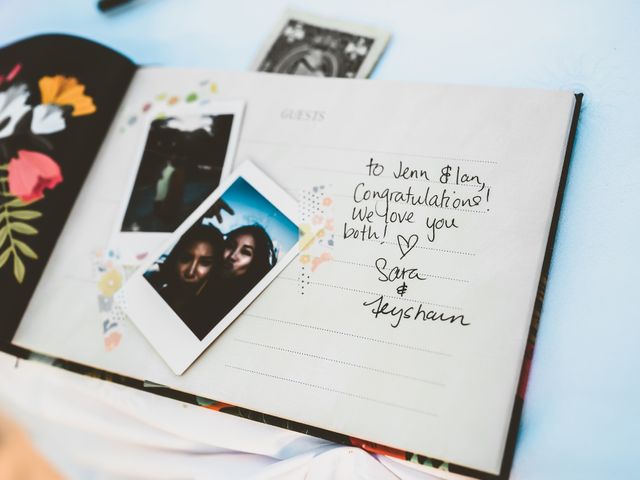 GUESTS
to Jenn & Ian,
Congratulations!
We love you
both! ♡
Sara
&
Teyshawn